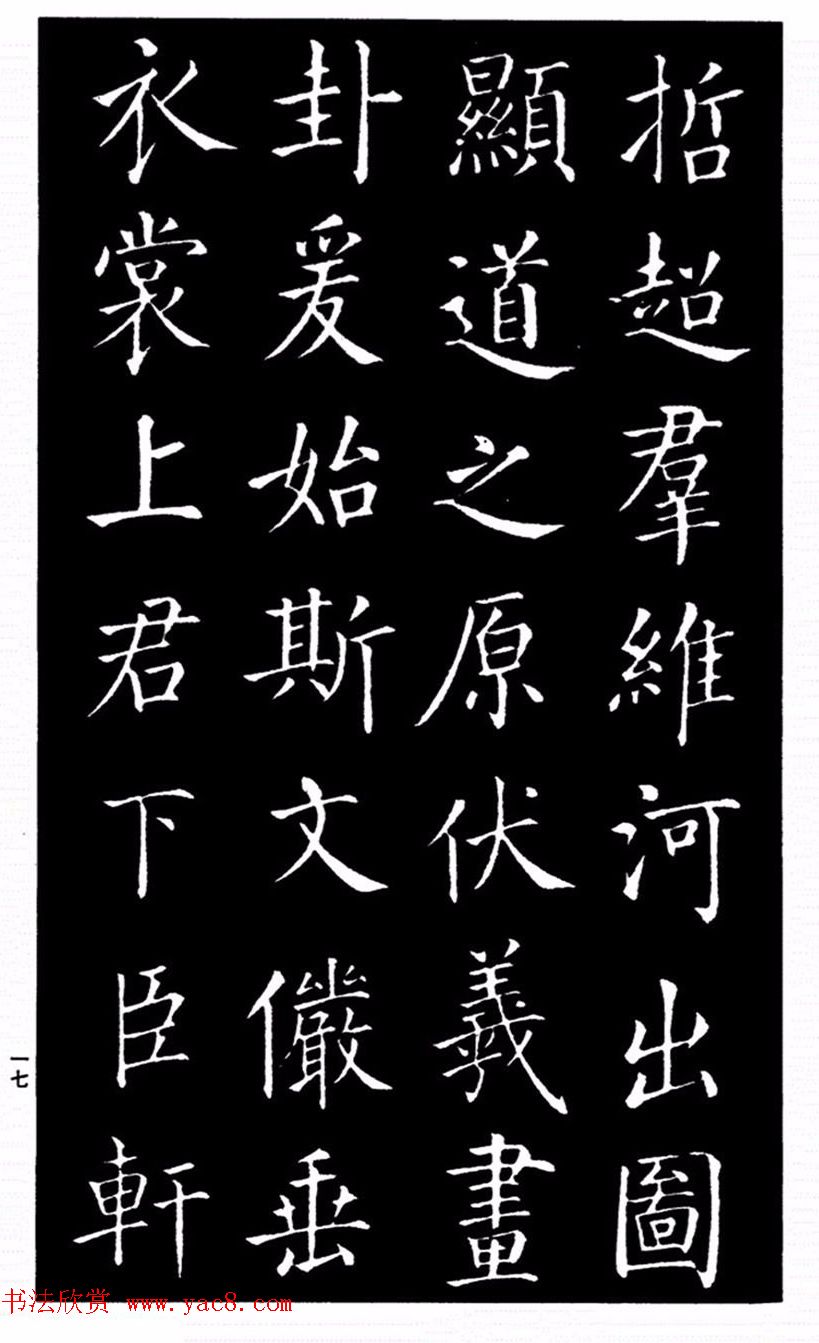 哲超羣維河出圖
顯道之原伏羲畫
卦爰始斯文儼垂
衣裳上君下臣軒
一七
书法欣赏 www.yac8.com